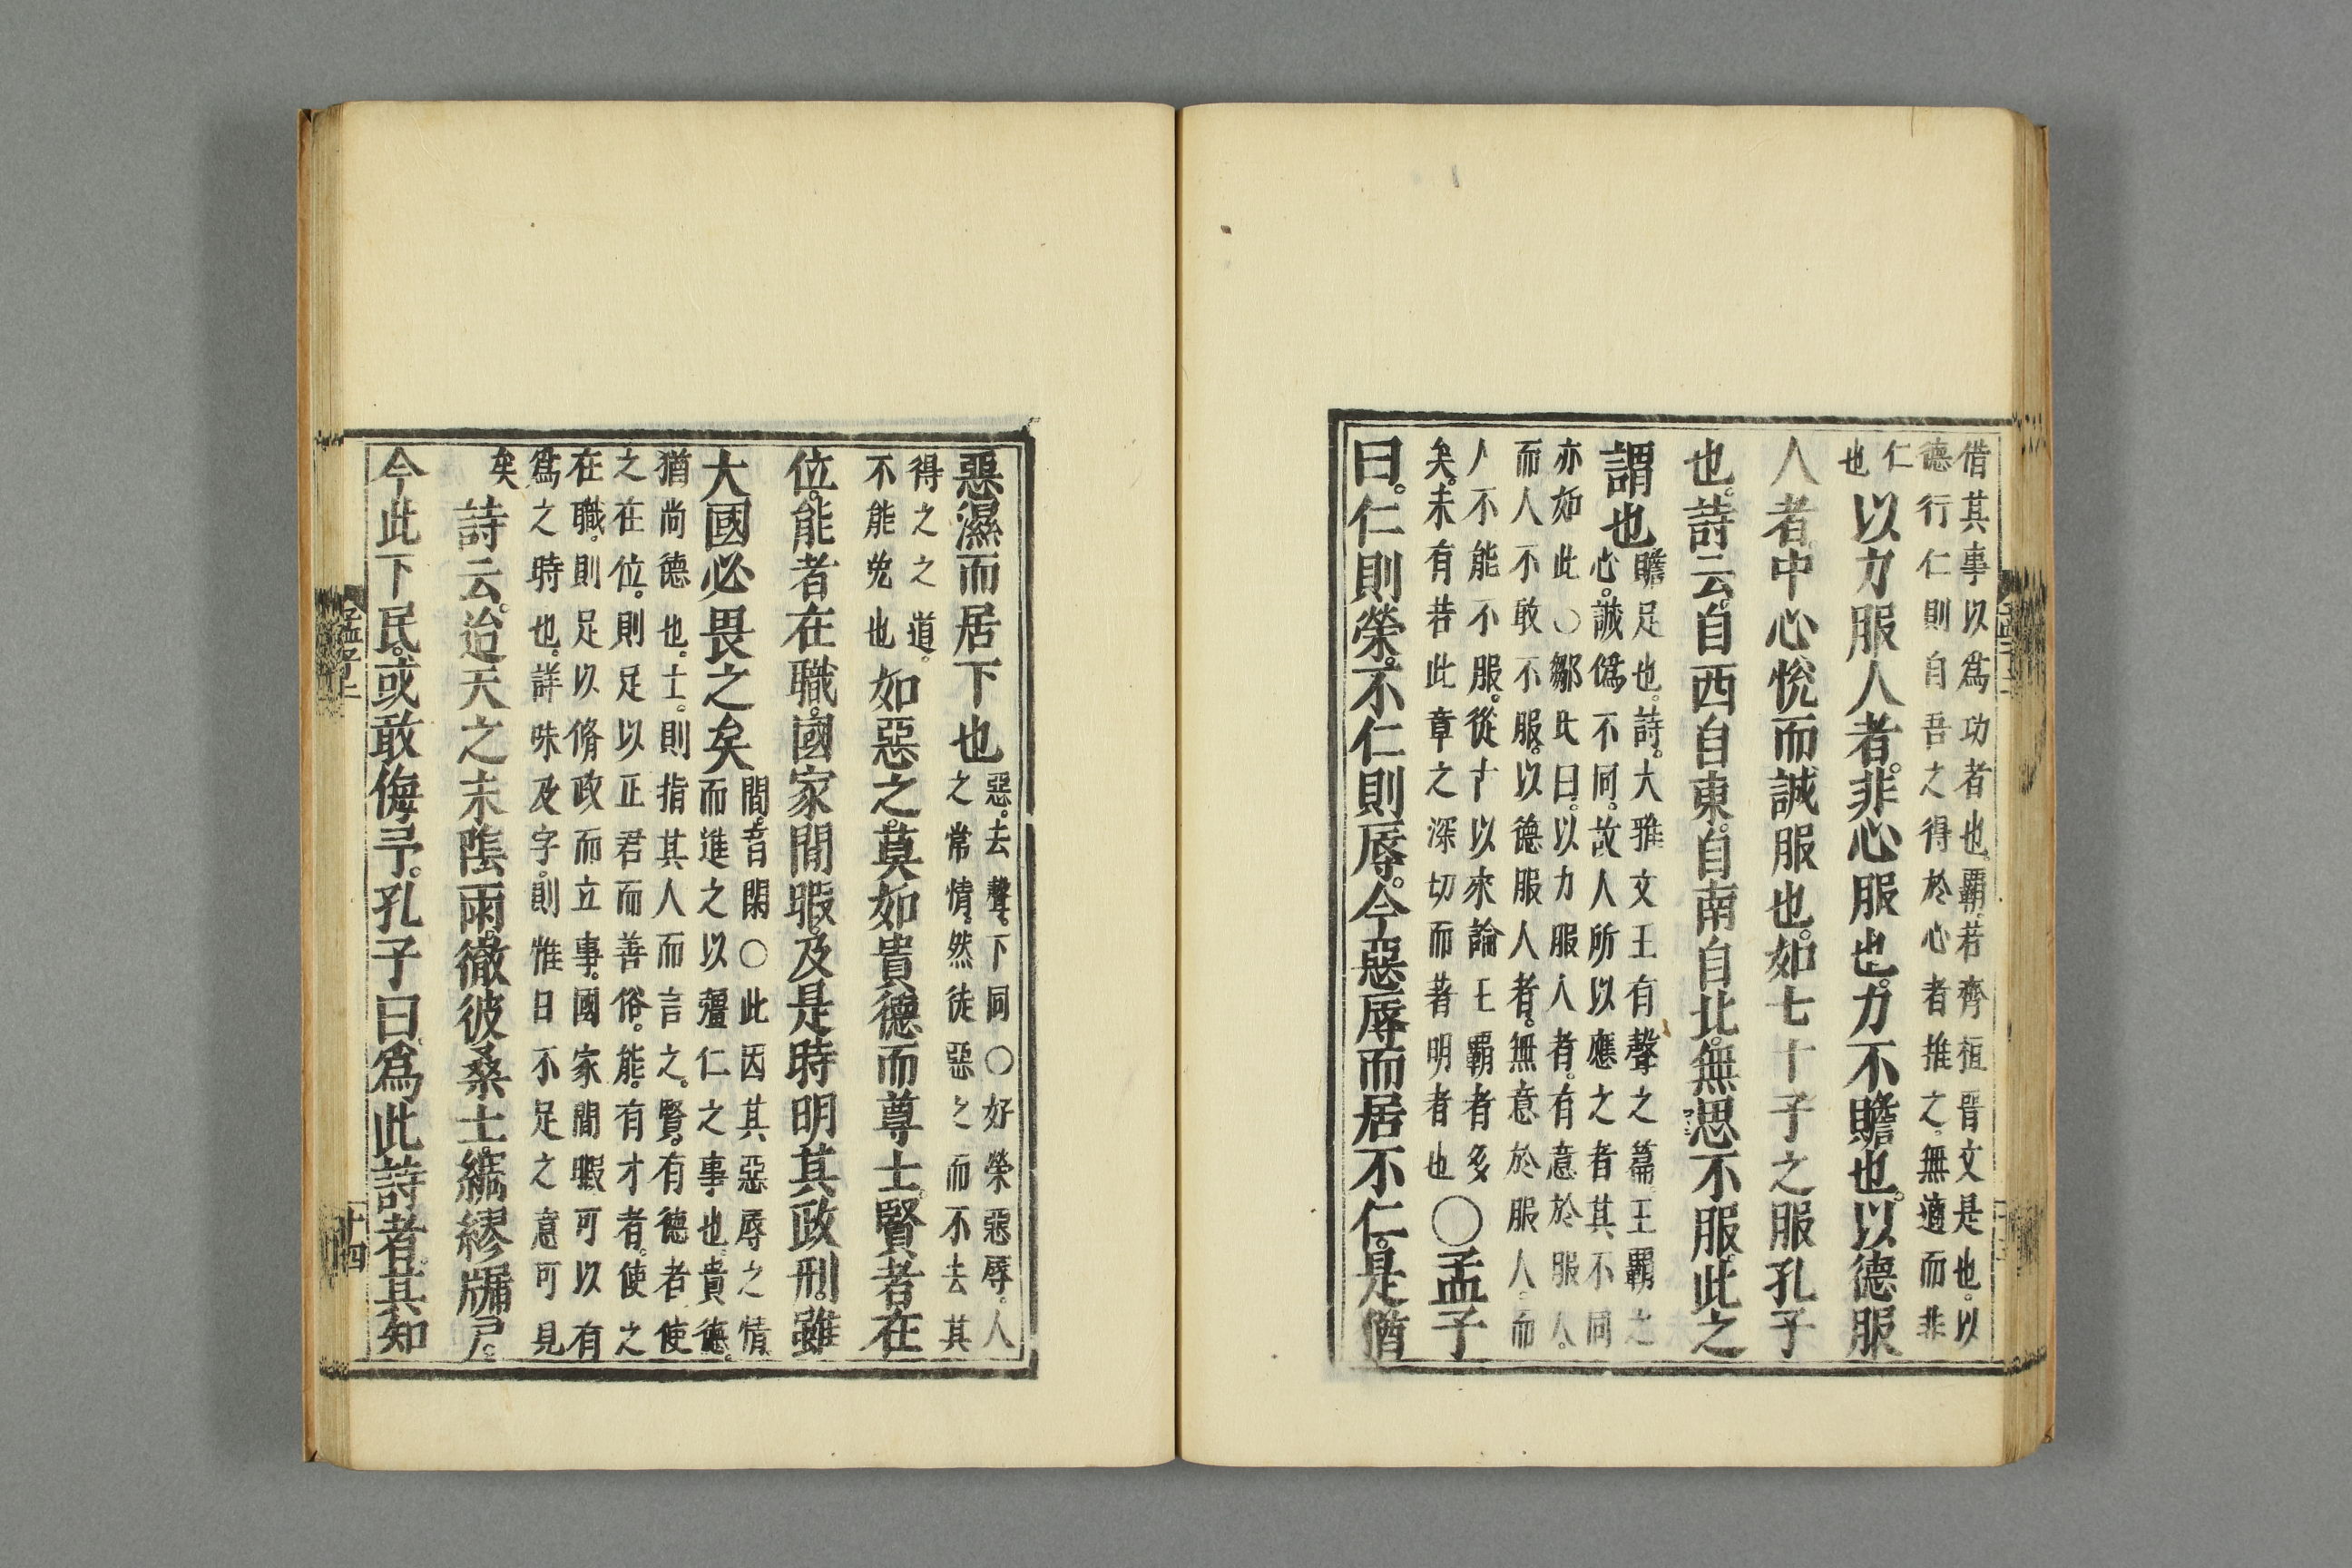 借其事以爲功者也。霸。若齊桓晉文是也。以
德行仁則自吾之得於心者推之。無適而非
仁
也
以力服人者。非心服也。力不贍也。以德服
人者。中心悅而誠服也。如七十子之服孔子
也。詩云。自西自東。自南自北。無思不服。此之
謂也
贍足也。詩。大雅文王有聲之篇。王霸之
心。誠僞不同。故人所以應之者其不同
亦如此○鄒氏曰。以力服人者。有意於服人。
而人不敢不服。以德服人者。無意於服人。而
人不能不服。從古以來論王霸者多
矣。未有若此章之深切而著明者也
○孟子
曰。仁則榮。不仁則辱。今惡辱而居不仁。是猶
惡濕而居下也
惡。去聲。下同○好榮惡辱。人
之常情。然徒惡之而不去其
得之之道。
不能免也
如惡之。莫如貴德而尊士。賢者在
位。能者在職。國家閒暇。及是時明其政刑。雖
大國必畏之矣
間。音閑○此因其惡辱之情
而進之以彊仁之事也。貴德。
猶尚德也。士。則指其人而言之。賢。有德者使
之在位。則足以正君而善俗。能。有才者。使之
在職。則足以脩政而立事。國家閒暇可以有
爲之時也。詳味及字。則惟日不足之意可見
矣
詩云。迨天之未陰雨。徹彼桑土。綢繆牖戶。
今此下民。或敢侮予。孔子曰爲此詩者。其知
孟子二
十四